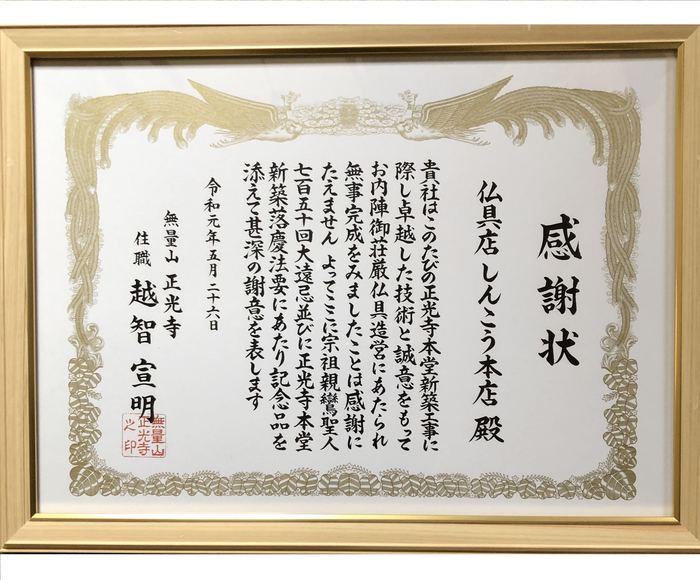 感謝状
仏具店しんこう本店 殿
貴社はこのたびの正光寺本堂新築工事に
際し卓越した技術と誠意をもって
お内陣御荘厳仏具造営にあたられ
無事完成をみましたことは感謝に
たえません よってここに宗祖親鸞聖人
七百五十回大遠忌並びに正光寺本堂
新築落慶法要にあたり記念品を
添えて甚深の謝意を表します
令和元年五月二十六日
無量山 正光寺
住職 越智 宣明
無量山
正光寺
之印